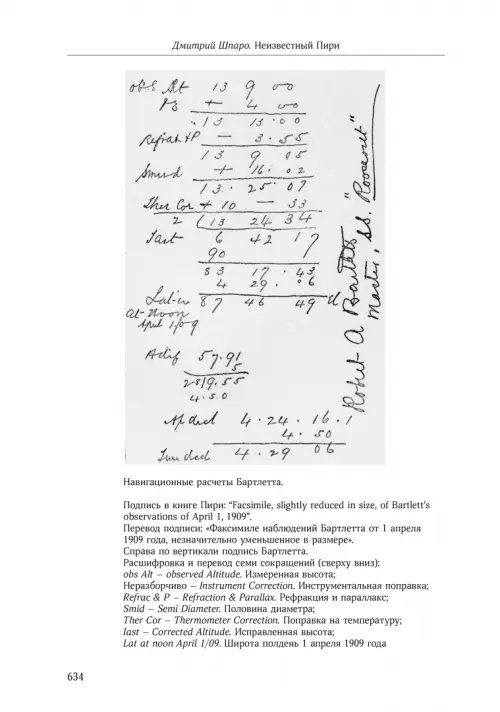 Дмитрий Шпаро. Неизвестный Пири
obs Alt 13 9 00
+ 4 00
13 13 · 00
Refrac & P — 3 · 55
13 9 05
Smid + 16 · 02
13 · 25 · 07
Ther Cor + 10 — 33
2 (13 24 34
6 42 17
90
83 17 · 43
4 29 · 06
Lat 87 46 49
at Noon
April 1/09
57.91
5
2819.55
4.50
Ap decl 4 · 24 · 16 · 1
4 · 50
decl 4 · 29 06
Robert A Bartlett
Master, SS. "Roosevelt"
Навигационные расчеты Бартлетта.
Подпись в книге Пири: “Facsimile, slightly reduced in size, of Bartlett’s
observations of April 1, 1909”.
Перевод подписи: «Факсимиле наблюдений Бартлетта от 1 апреля
1909 года, незначительно уменьшенное в размере».
Справа по вертикали подпись Бартлетта.
Расшифровка и перевод семи сокращений (сверху вниз):
obs Alt – observed Altitude. Измеренная высота;
Неразборчиво – Instrument Correction. Инструментальная поправка;
Refrac & P – Refraction & Parallax. Рефракция и параллакс;
Smid – Semi Diameter. Половина диаметра;
Ther Cor – Thermometer Correction. Поправка на температуру;
Iast – Corrected Altitude. Исправленная высота;
Lat at noon April 1/09. Широта полдень 1 апреля 1909 года
634